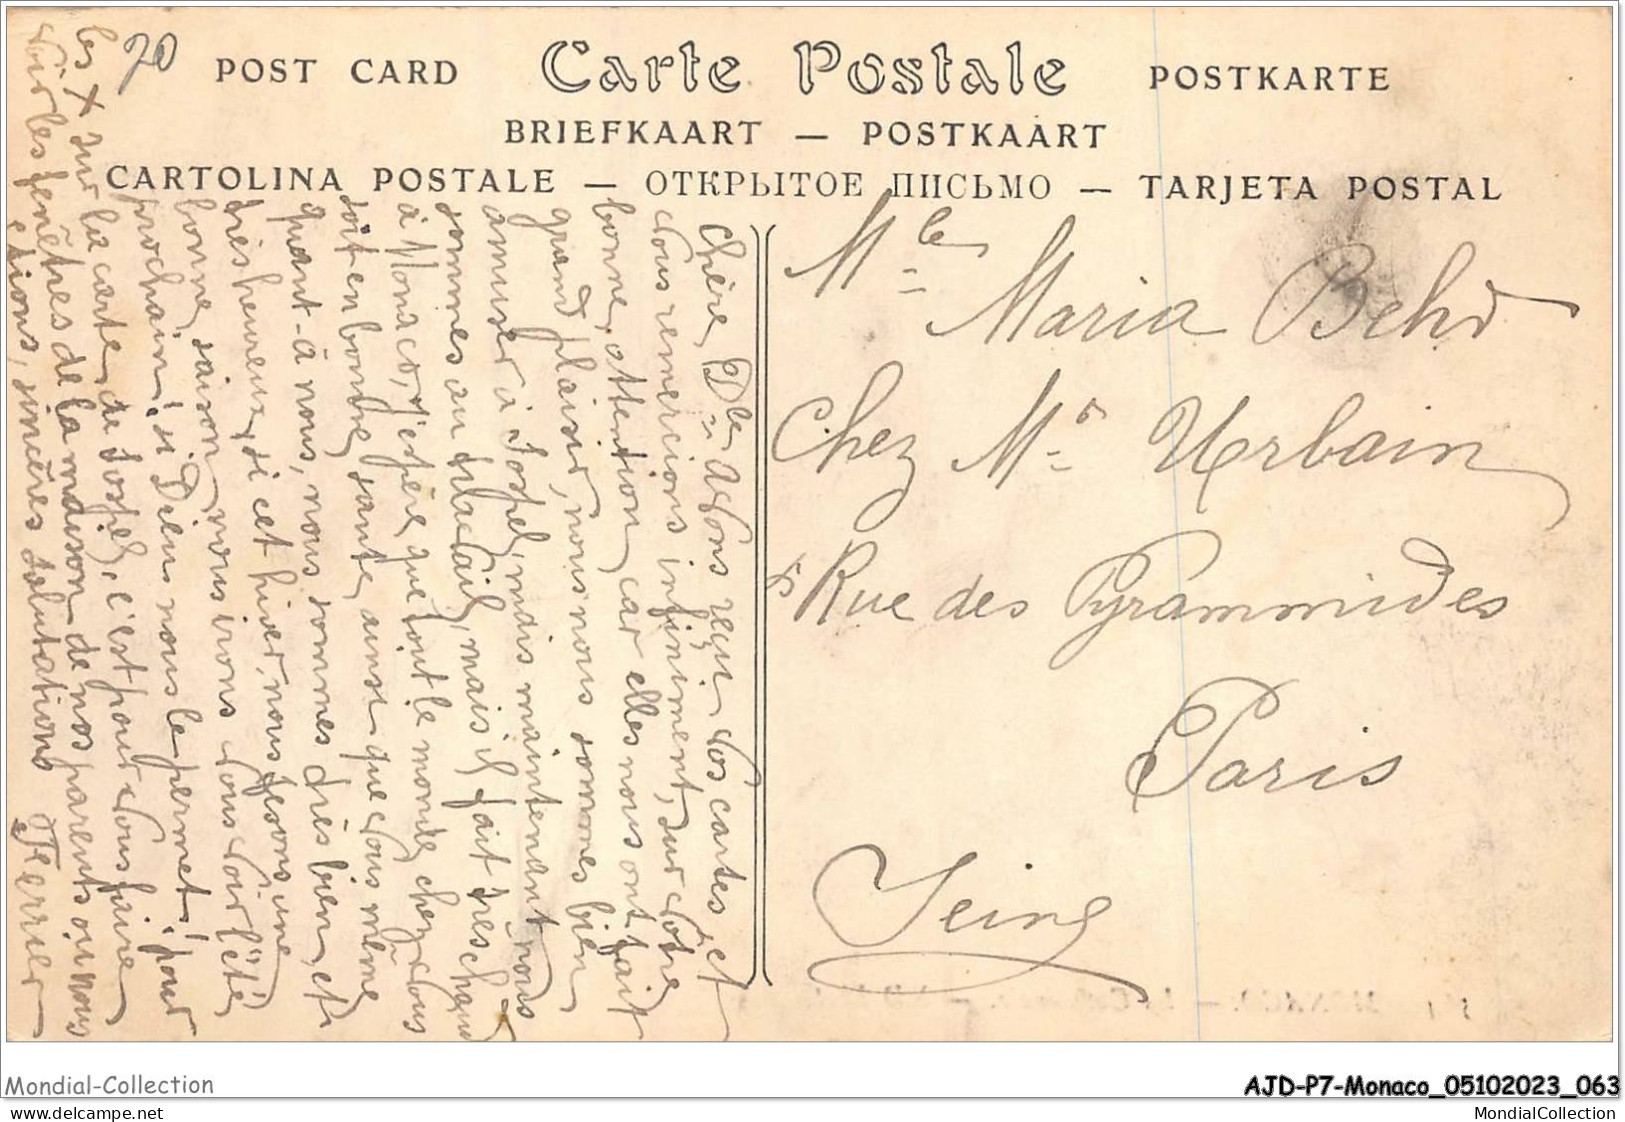 70
POST CARD Carte Postale POSTKARTE
BRIEFKAART — POSTKAART
CARTOLINA POSTALE — ОТКРЫТОЕ ПИСЬМО — TARJETA POSTAL
Mlle
Maria Behr
Chez Mr Urbain
Rue des Pyrammides
Paris
Seine
Chère Dlle Avons reçu vos cartes, et
vous remercions infiniment, sur votre
bonne attention, car elles nous ont fait
grand plaisir, nous nous sommes bien
amuser à Sospel, mais maintenant nous
sommes au placard, mais il fait très chaud
à Monaco, j'espère que tout le monde chez vous
soit en bonne santé, ainsi que vous même
quant-à nous, nous sommes très bien, et
très heureux, si cet hiver, nous fesons une
bonne saison, nous irons vous voir l'été
prochain! si Dieu nous le permet! pour
les X sur la carte, de Sospel, c'est pour vous faire
voir les fenêtres de la maison de nos parents où nous
étions, sincères salutations Ferrier
MONACO. —
Mondial-Collection
AJD-P7-Monaco_05102023_063
delcampe.net
MondialCollection